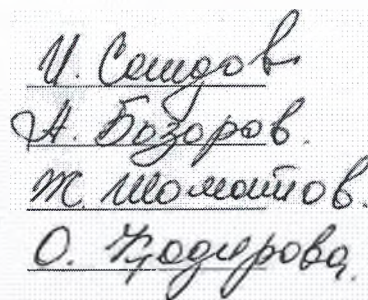 И. Саидов
А. Бозоров.
Ж. Шоматов.
О. Қодирова.